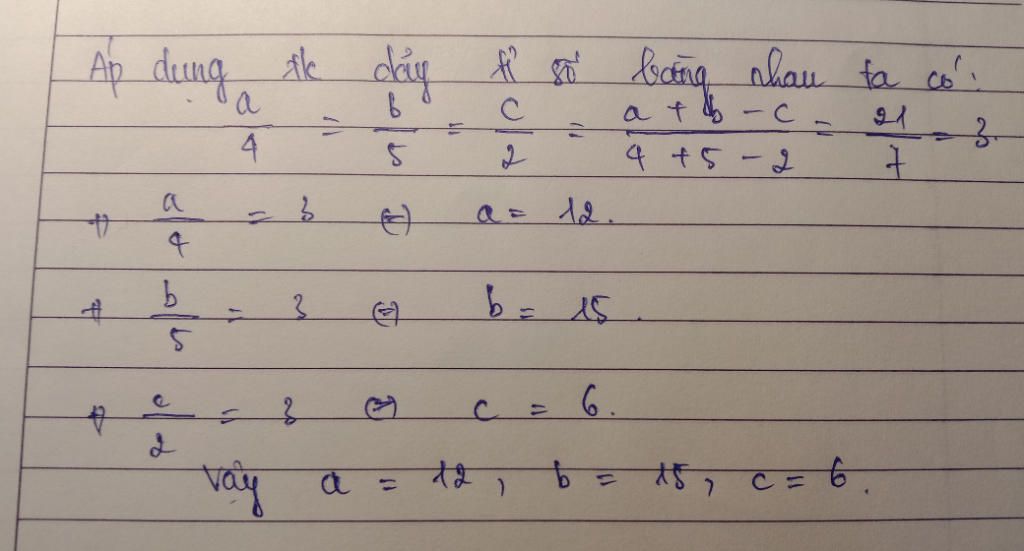 Áp dụng tc dãy tỉ số bằng nhau ta có:
a/4 = b/5 = c/2 = (a + b - c)/(4 + 5 - 2) = 21/7 = 3.
+) a/4 = 3 (=) a = 12.
+ b/5 = 3 (=) b = 15.
+) c/2 = 3 (=) c = 6.
Vậy a = 12, b = 15, c = 6.